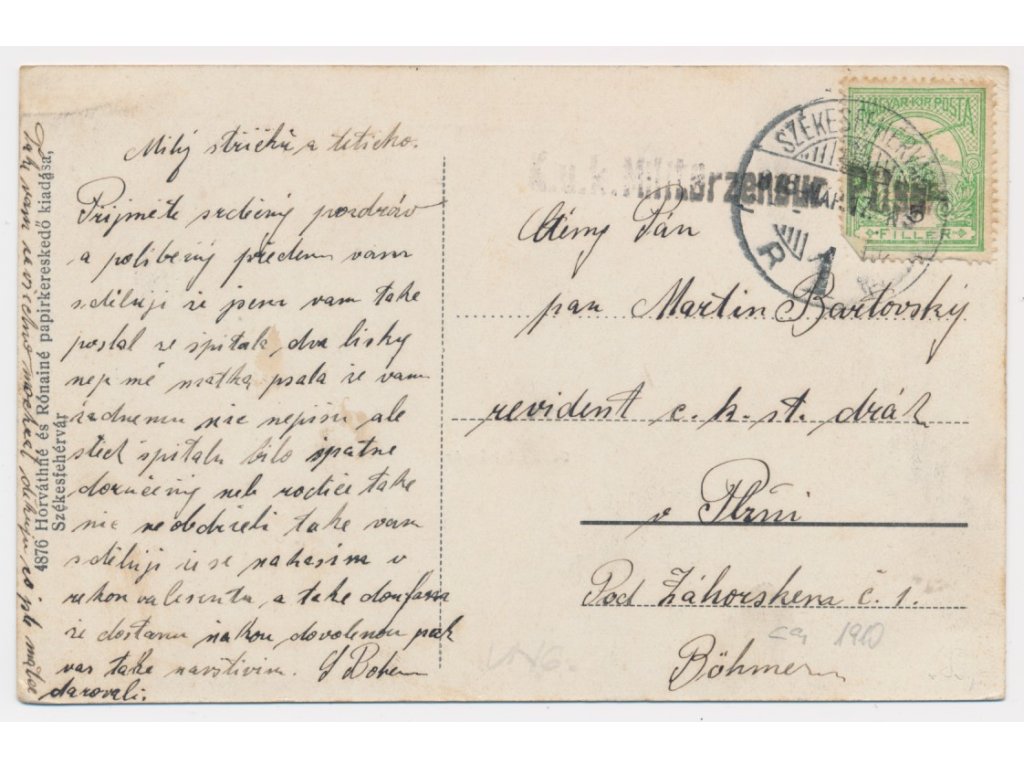 Milý stričku a teticko.
Prijměte srdečný pozdráv
a polibený předem vam
sděluji že jsem vam take
poslal ze spitalu dva lisky
nej mé matka psala že vam
žadnemu nic nepisu ale
stech spitalu bilo špatne
doručeny neb rodiče take
nic neobdrželi take vam
sděluji že se nahazim v
rekonvalescentu, a take doufam
že dostanu nakou dovolenou pak
vas take navštivim. S Bohem
darovali.
4876 Horváthné és Rónainé papirkereskedő kiadása,
Székesfehérvár
K.u.k. Militärzensur
SZÉKESFEHÉRVÁR
1
MAGYAR·KIR·POSTA
FILLÉR
Ctěmy Pán
pan Martin Bartovský
revident c. k. st. dráh
v Plzni
Pod Záhorskem č. 1.
Böhmen
ca 1910